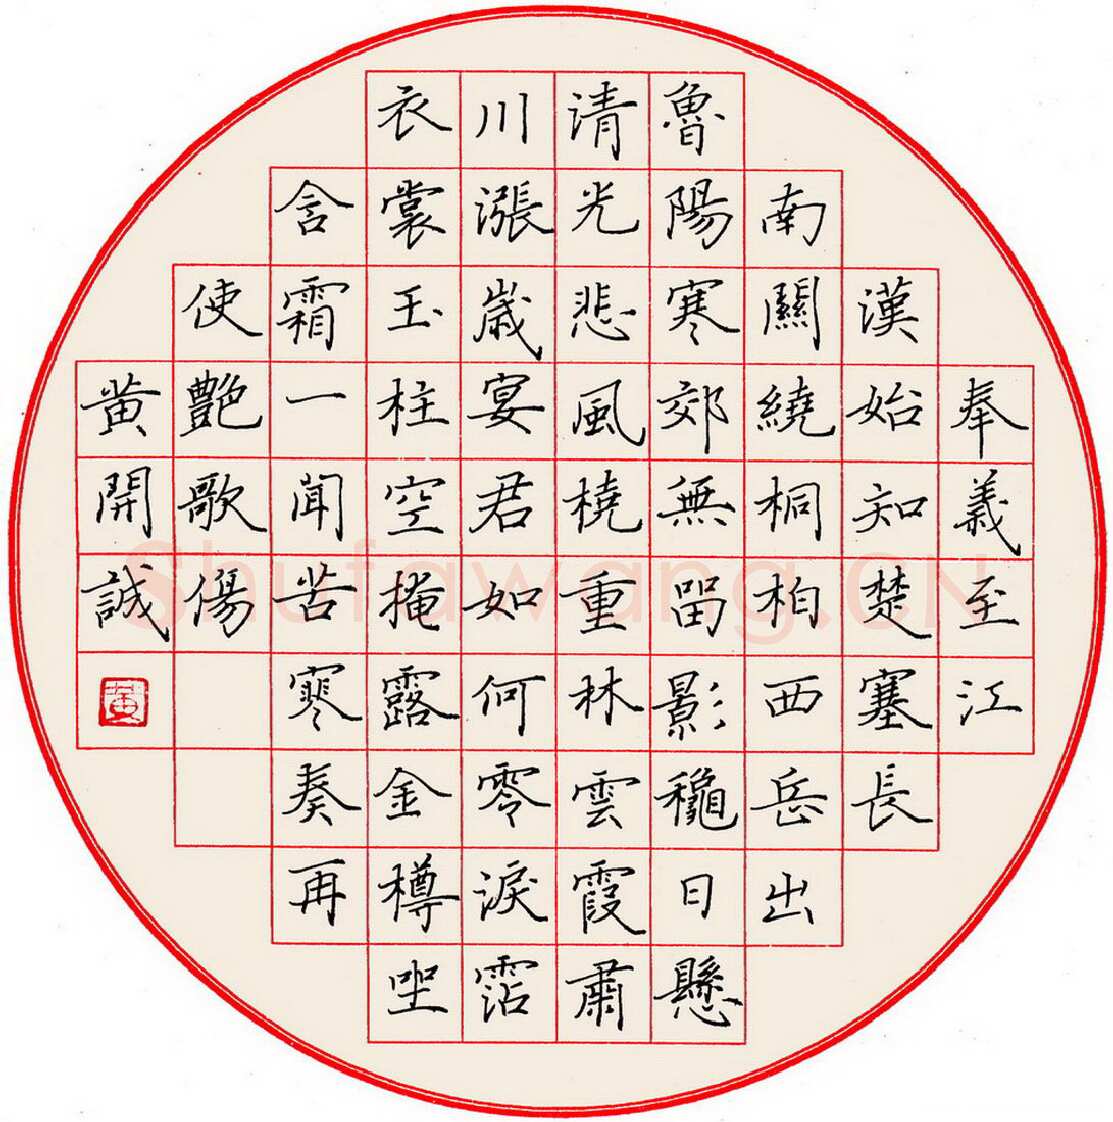 奉義至江
漢始知楚塞長
南關繞桐柏西岳出
魯陽寒郊無留影龝日懸
清光悲風橈重林雲霞肅
川漲歲宴君如何零淚霑
衣裳玉柱空掩露金樽坐
含霜一聞苦寒奏再
使艷歌傷
黄開誠
黄
Shufawang.CN